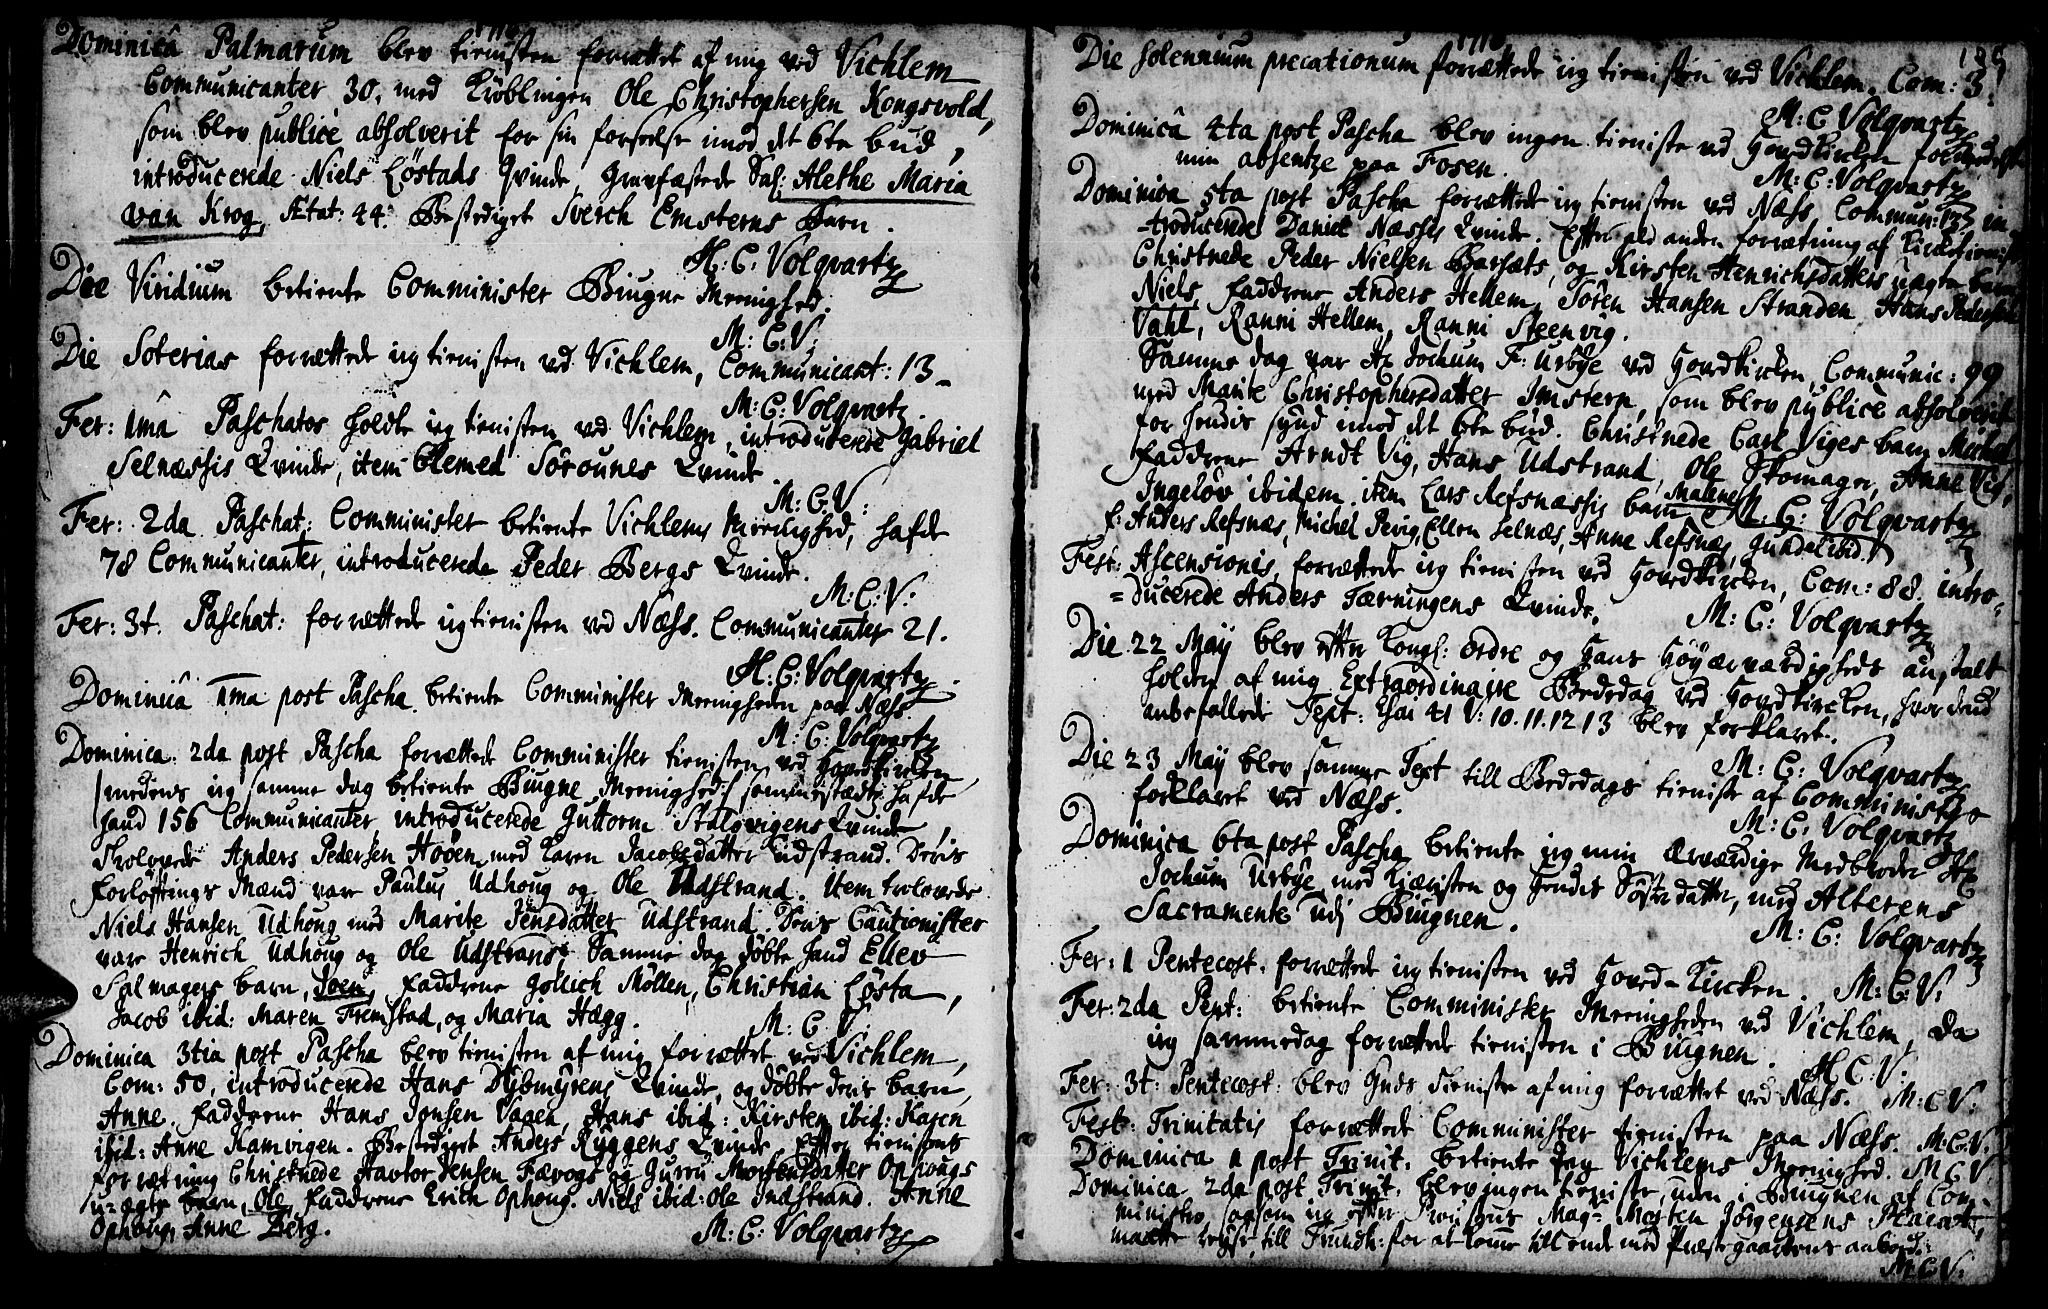 1718
Dominicâ Palmarum blev tienisten forrættet af mig ved Vichlem
Communicanter 30, med Krøblingen Ole Christophersen Kongsvold,
som blev publicè absolverit for sin forseelse imod det 6te bud,
introducerede Niels Løstads Qvinde, gravfæstede Sal: Alethe Maria
van Krog, Ætat: 44. Bestediget Sverch Emsterns Barn.
H: C: Volqvartz
Die Viridium betiente Comminister Biugne Meenighed.
M: C: V:
Die Soterias forrættede ieg tienisten ved Vichlem, Communicant: 13
M: C: Volqvartz
Fer: 1mâ Paschatos holdte ieg tienisten ved Vichlem, introducerede Gabriel
Selnæssis Qvinde, item Olemed Sørounes Qvinde
M: C: V:
Fer: 2da Paschat: Comminister betiente Vichlems Meenighed, hafde
78 Communicanter, introducerede Peder Bergs Qvinde.
M: C: V:
Fer: 3t. Paschat: forrættede ieg tienisten ved Næss. Communicanter 21.
H: C: Volqvartz
Dominicâ 1ma post Pascha betiente Comminister Meenigheden paa Næss.
M: C: Volqvartz
Dominica 2da post Pascha forrættede Comminister tienisten ved Hovedkircken,
medens ieg samme dag betiente Biugne Meenighed; sammestædtz hafde
hand 156 Communicanter introducerede Guttorm Stalsvigens Qvinde,
Trolovede Anders Pedersen Høøen med Karen Jacobsdatter Udstrand. Deris
forløftings Mænd var Paulus Udhoug og Ole Udstrand. Item trolovede
Niels Hansen Udhoug med Marite Jensdatter Udstrand. Deris Cautionister
vare Henrich Udhoug og Ole Udstrand. Samme dag døbte hand Ellev
Salmagers barn, Joen, Faddrene Gollich Møllen, Christian Løsta,
Jacob ibid: Maren Fremstad, og Maria Hægg.
M: C: V:
Dominica 3tia post Pascha blev tienisten af mig forrættet ved Vichlem,
Com: 50, introducerede Hans Dybmyrens Qvinde, og døbte deris barn,
Anne, Faddrene Hans Jonsen Vaaen, Hans ibid: Kirsten ibid: Karen
ibid: Anne Kamvigen. Bestediget Anders Ryggens Qvinde. Efter tienistens
forrætning Christnede Havtor Jensen Fævogs og Gurru Mortensdatter Ophougs
uægte barn, Ole, Faddrene Erich Ophoug. Niels ibid: Ole Indstrand. Anne
Ophoug, Anne Berg.
M: C: Volqvartz
1718
Die Solennium precationum forrættede ieg tienisten ved Vichlem, Com: 3.
M: C: Volqvartz
Dominicâ 4ta post Pascha blev ingen tieniste ved Hovedkircken formedelst
min absentze paa Fosen.
M: C: Volqvartz
Dominica 5ta post Pascha forrættede ieg tienisten ved Næss, Commun: 123 in-
-troducerede Daniel Næssis Qvinde. Efter ald anden forrætning af Kircketieniste
Christnede Peder Nielsen Barsæts, og Kirsten Henrichsdatters uægte barn
Niels, Faddrene Anders Hellem, Søren Hansen Stranden Hans Pedersen
Vahl, Ranni Hellem, Ranni Steenvig.
Samme dag var Hr Jochum F: Urbye ved Hovedkircken, Communic: 99
med Marite Christophersdatter Imstern, som blev publicè absolverit
for hendis synd imod det 6te bud. Christnede Carl Viges barn Michel,
Faddrene Arndt Vig, Hans Udstrand, Ole Skomager, Anne Vig,
Ingeløv ibidem. item Lars Refsnæssis barn Malene
M: C: Volqvartz
f: Anders Refsnæs, Michel Pevig, Ellen Selnæs, Anne Refsnæs, Gundel ibid.
Fest: Ascensionis, forrættede ieg tienisten ved Hovedkircken, Com: 88. intro-
=ducerede Anders Tærningens Qvinde.
M: C: Volqvartz
Die 22 Maÿ blev efter Kongl: Ordre og Hans Høÿærværdigheds anstalt
holden af mig Extraordinarie Bededag ved Hovedkircken, hvor dend
anbefallede Text: Esai 41 V: 10. 11. 12 13 blev forklaret.
M: C: Volqvartz
Die 23 Maÿ blev samme Text till Bededags tieniste af Comministro
forklaret ved Næss.
M: C: Volqvartz
Dominica 6ta post Pascha betiente ieg min Ærværdige Medbroder Hr
Jochum Urbye, med Kiæristen og hendis Søsterdatter, med Alterens
Sacramente udj Biugnen.
M: C: Volqvartz
Fer: 1 Pentecost. forrættede ieg tienisten ved Hoved-Kircken. M: C: V:
Fer: 2da Pent: betiente Comminister Meenigheden ved Vichlem, da
ieg sammedag forrættede tienisten i Biugnen.
H C: V:
Fer: 3t: Pentecost: blev Guds tieniste af mig forrættet ved Næss. M: C V:
Fest: Trinitatis forrættede Comminister tienisten paa Næss. M: C: V:
Dominica 1 post Trinit. betiente Jeg Vichlems Meenighed. M C V
Dominica 2da post Trinit. blev ingen tieniste, uden i Biugnen af Com-
ministro, saasom ieg efter Proustens Mag: Morten Jørgensens Placat,
maatte reyse till Trundh: for at kome till ende med Præstegaardens aaboed.
M C V: